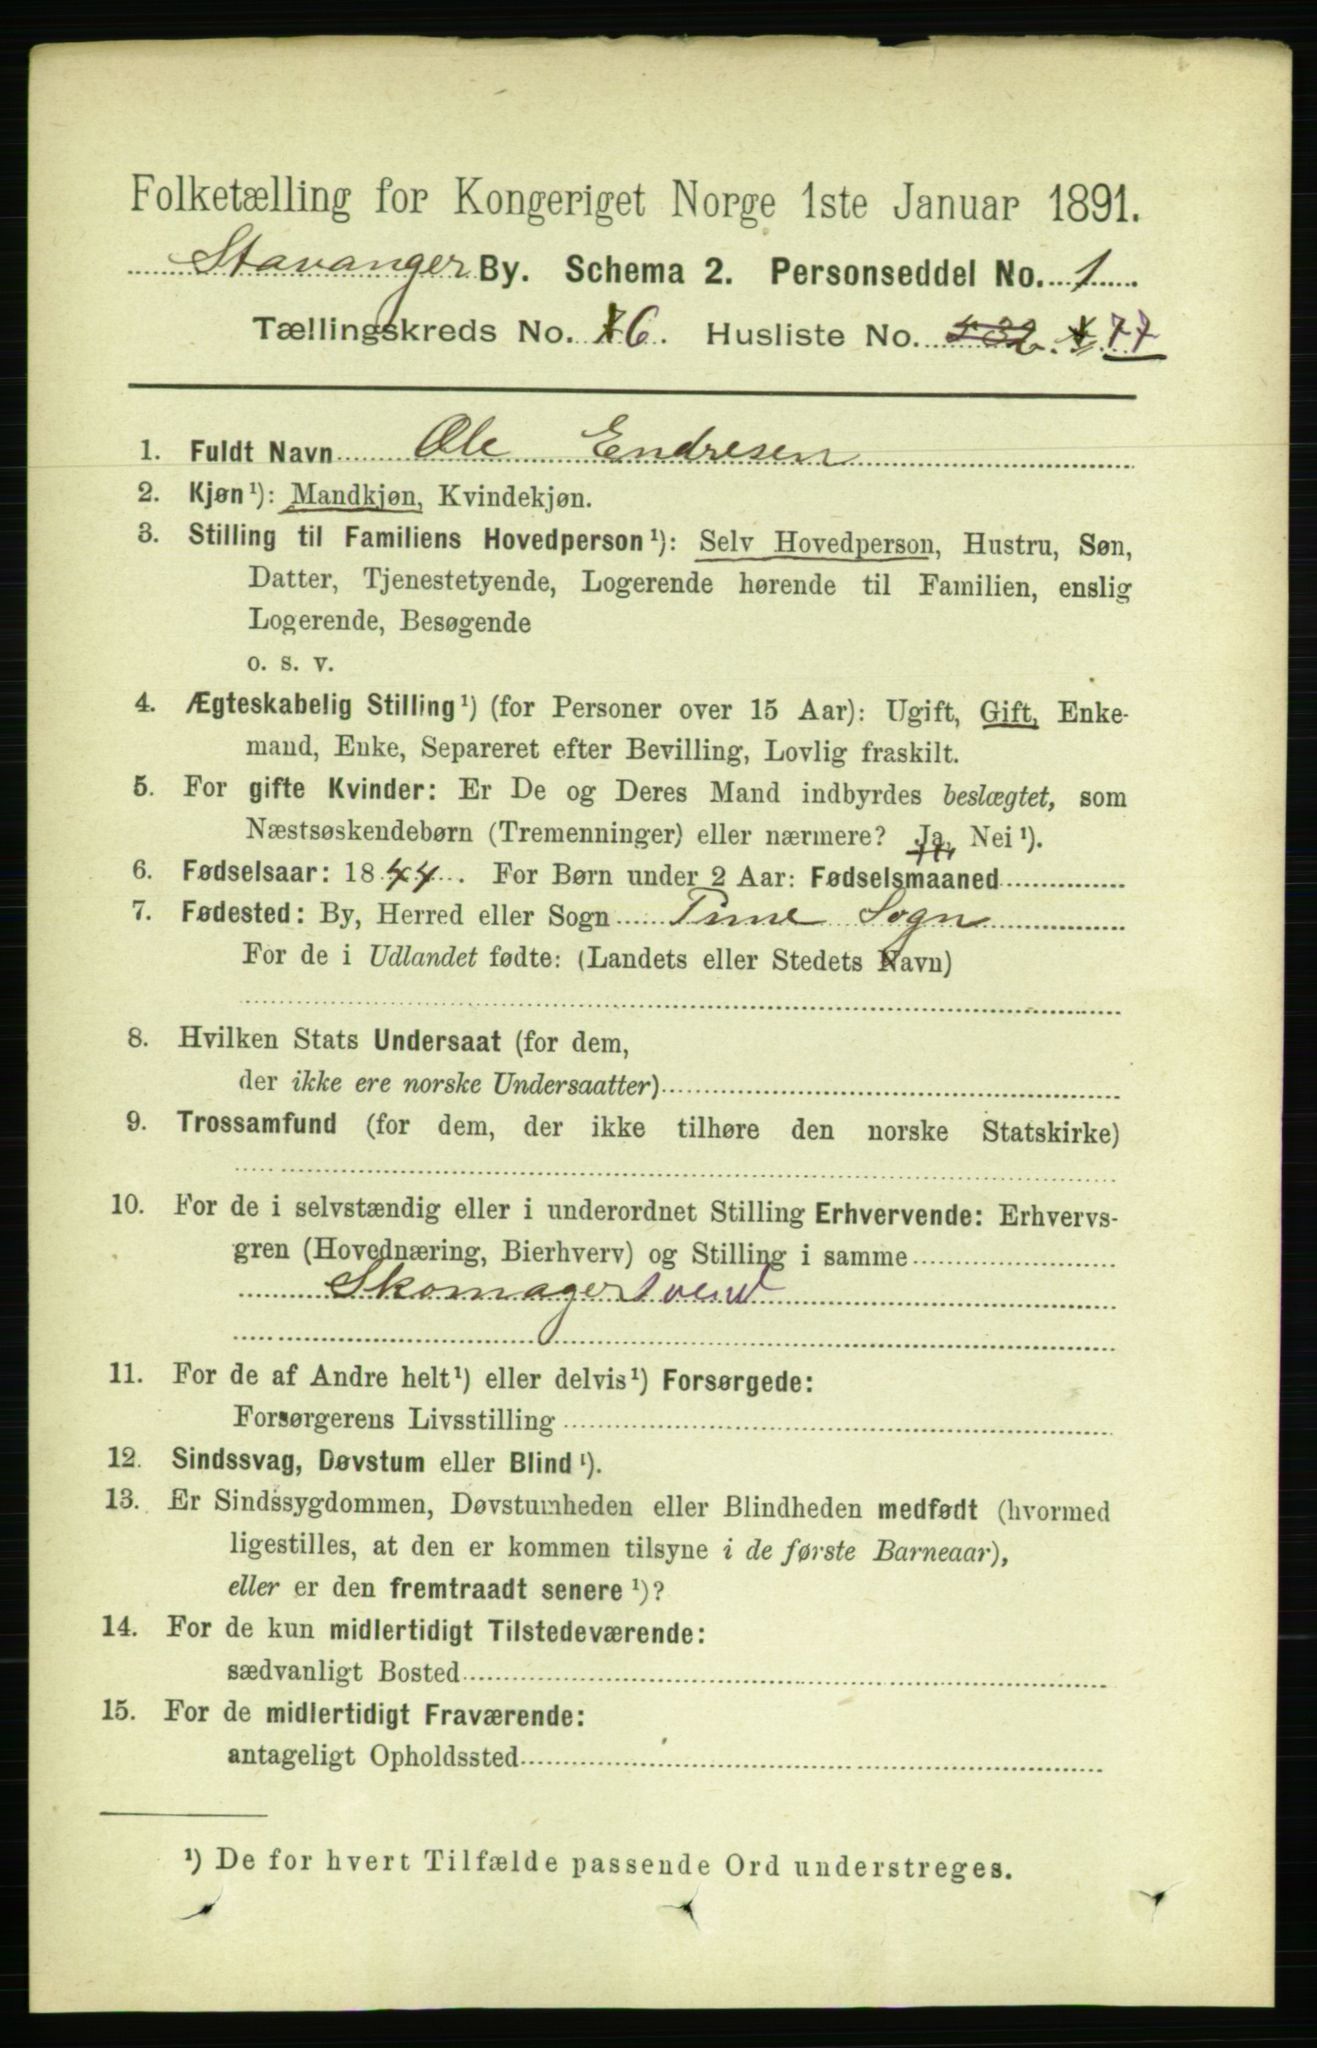 Folketælling for Kongeriget Norge 1ste Januar 1891.
Stavanger By. Schema 2. Personseddel No. 1
Tællingskreds No. 6. Husliste No. 77
1. Fuldt Navn Ole Endresen
2. Kjøn¹): Mandkjøn, Kvindekjøn.
3. Stilling til Familiens Hovedperson¹): Selv Hovedperson, Hustru, Søn,
Datter, Tjenestetyende, Logerende hørende til Familien, enslig
Logerende, Besøgende
o. s. v.
4. Ægteskabelig Stilling¹) (for Personer over 15 Aar): Ugift, Gift, Enke-
mand, Enke, Separeret efter Bevilling, Lovlig fraskilt.
5. For gifte Kvinder: Er De og Deres Mand indbyrdes beslægtet, som
Næstsøskendebørn (Tremenninger) eller nærmere? Ja, Nei¹).
6. Fødselsaar: 1844. For Børn under 2 Aar: Fødselsmaaned
7. Fødested: By, Herred eller Sogn Time Sogn
For de i Udlandet fødte: (Landets eller Stedets Navn)
8. Hvilken Stats Undersaat (for dem,
der ikke ere norske Undersaatter)
9. Trossamfund (for dem, der ikke tilhøre den norske Statskirke)
10. For de i selvstændig eller i underordnet Stilling Erhvervende: Erhvervs-
gren (Hovednæring, Bierhverv) og Stilling i samme
Skomagersvend
11. For de af Andre helt¹) eller delvis¹) Forsørgede:
Forsørgerens Livsstilling
12. Sindssvag, Døvstum eller Blind¹).
13. Er Sindssygdommen, Døvstumheden eller Blindheden medfødt (hvormed
ligestilles, at den er kommen tilsyne i de første Barneaar),
eller er den fremtraadt senere¹)?
14. For de kun midlertidigt Tilstedeværende:
sædvanligt Bosted
15. For de midlertidigt Fraværende:
antageligt Opholdssted
¹) De for hvert Tilfælde passende Ord understreges.